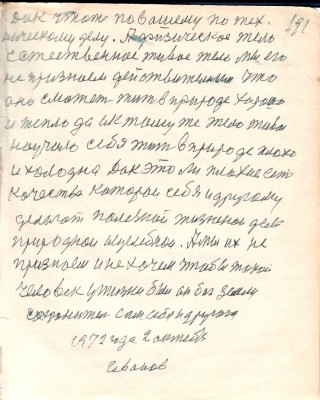 191
Как что то по вашему по тех.
ническому делу. А физическое тело
естественное живое тело мы его
не признаем действительным что
оно сможет жить в природе хорошо
и тепло да и к тому же тело
научило себя жить в природе плохо
и холодна Как это ли плохие есть
качества которои себя и другому
делают полезной жизненое дело
природной и целебной. А мы их не
признаем и не хочем чтобы такой
человек у жизни был он бог земли
сохранитель сам себя и друга
1972 года 2 октября
Иванов